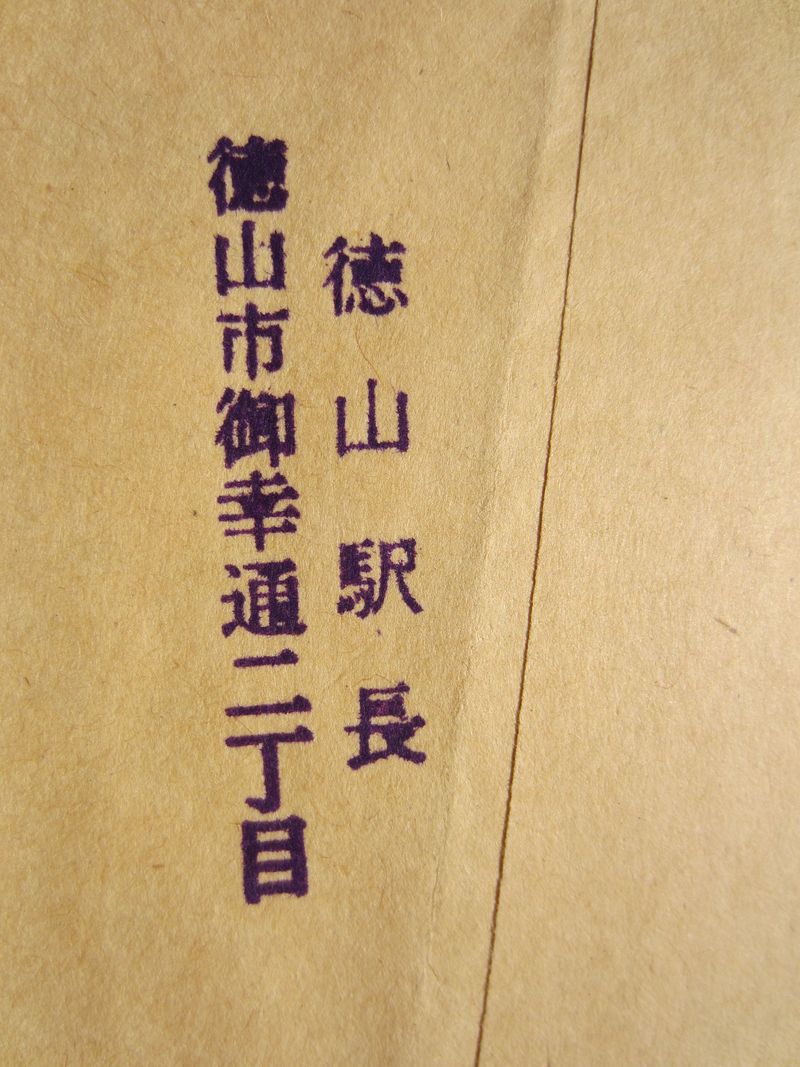 徳山駅長
徳山市御幸通二丁目